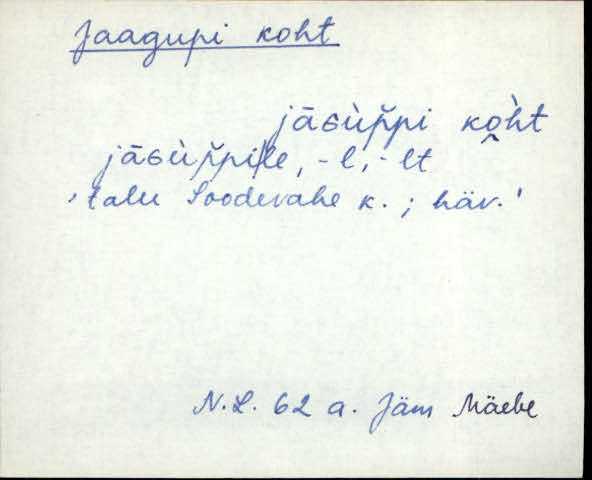 Jaagupi koht
jāɢùp̆pi ko̭h̀t
jāɢùp̆pi|le, -l, -lt
'talu Soodevahe k.; häv.'
N.L. 62 a. Jäm Mäebe